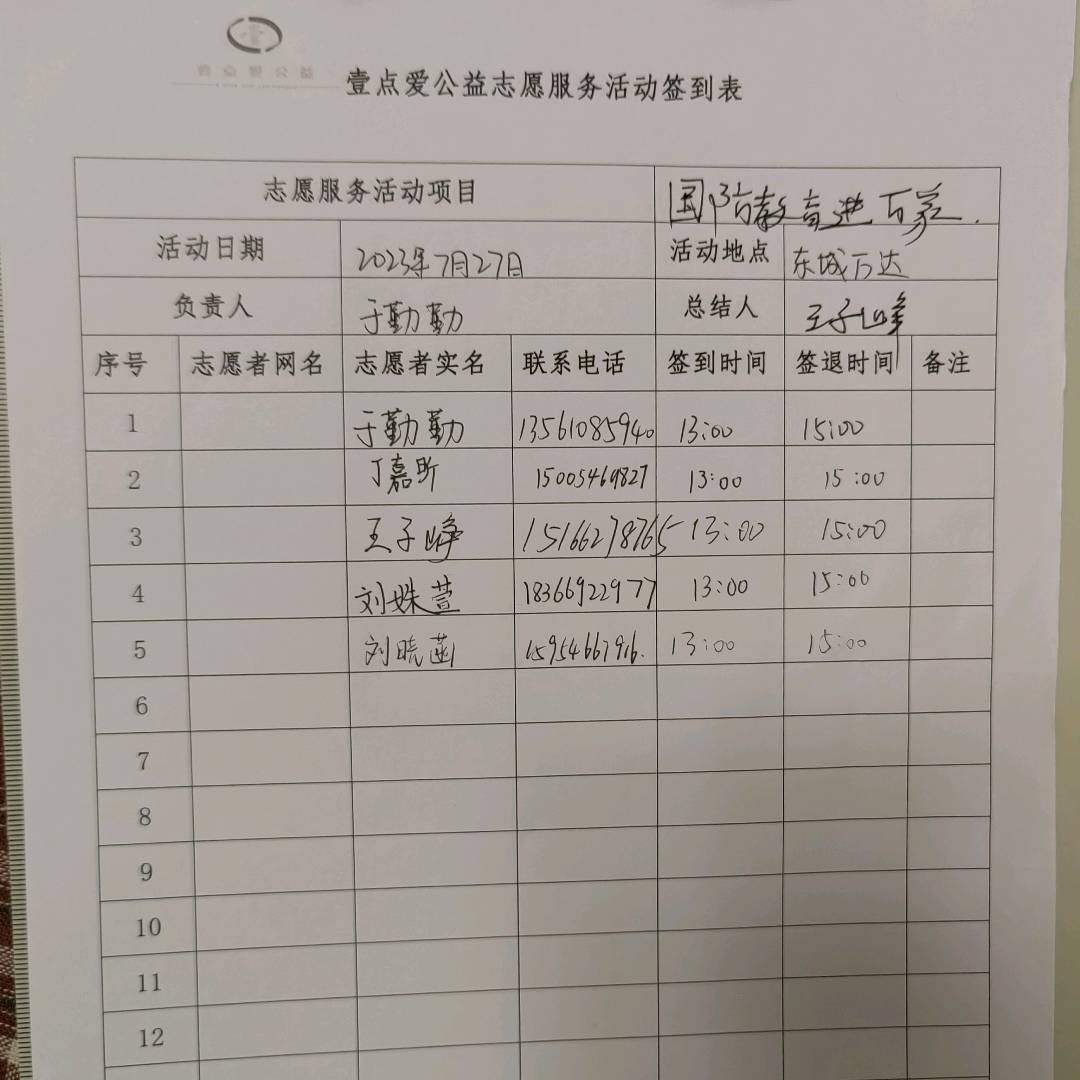 壹点爱公益志愿服务活动签到表
志愿服务活动项目 国防教育进万家.
活动日期 2023年7月27日 活动地点 东城万达
负责人 于勤勤 总结人 王子峥
序号 志愿者网名 志愿者实名 联系电话 签到时间 签退时间 备注
1 于勤勤 13561085940 13:00 15:00
2 丁嘉昕 15005469827 13:00 15:00
3 王子峥 15166278765 13:00 15:00
4 刘姝萱 18366922977 13:00 15:00
5 刘晓菡 15954667916. 13:00 15:00
6
7
8
9
10
11
12